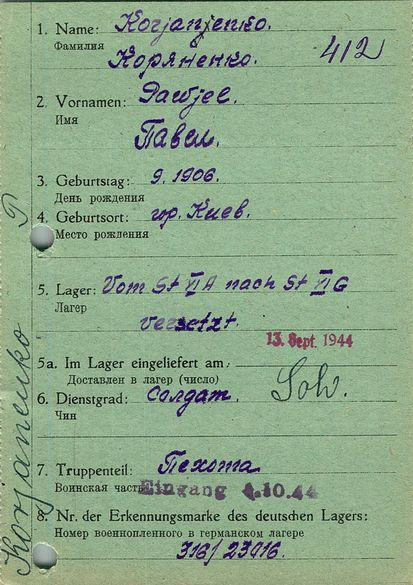 1. Name: Korjanjenko.
Фамилия
Коряненко.
412
2. Vornamen: Pawjel.
Имя
Павел.
3. Geburtstag: 9. 1906.
День рождения
4. Geburtsort: гор. Киев.
Место рождения
5. Lager: Vom St VI A nach St VI G
Лагер
versetzt.
13. Sept. 1944
5a. Im Lager eingeliefert am:
Доставлен в лагер (число)
6. Dienstgrad: Солдат. Sol.
Чин
7. Truppenteil: Пехота
Воинская часть
Eingang 4.10.44
8. Nr. der Erkennungsmarke des deutschen Lagers:
Номер военнопленного в германском лагере
316/23016.
Korjanenko P